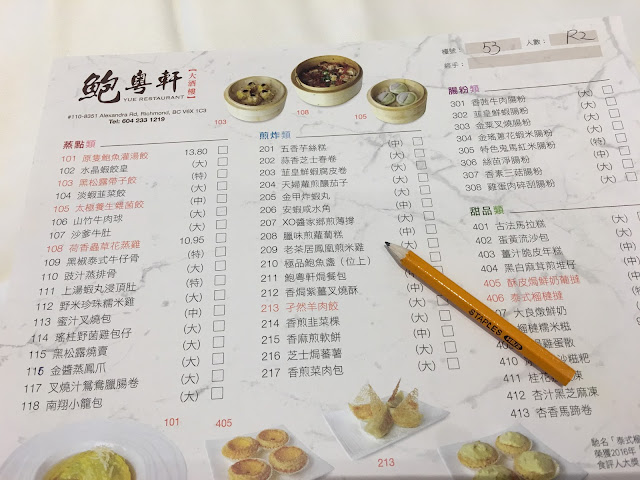 鮑粵軒【大酒樓】
YUE RESTAURANT
#110-8351 Alexandra Rd, Richmond, BC V6X 1C3
Tel: 604 233 1219
檯號: 53 人數: R2
經手:
103
108
105
蒸點類
101 原隻鮑魚灌湯餃 13.80
102 水晶蝦餃皇 (大)
103 黑松露帶子餃 (特)
104 淡蝦韮菜餃 (大)
105 太極養生螺菌餃 (中)
106 山竹牛肉球 (大)
107 沙爹牛肚 (大)
108 荷香蟲草花蒸雞 10.95
109 黑椒泰式牛仔骨 (特)
110 豉汁蒸排骨 (大)
111 上湯蝦丸浸頂肚 (特)
112 野米珍珠糯米雞 (中)
113 蜜汁叉燒包 (中)
114 瑤柱野菌雞包仔 (中)
115 黑松露燒賣 (大)
116 金醬蒸鳳爪 (大)
117 叉燒汁鴛鴦腸卷 (特)
118 南翔小籠包 (大)
煎炸類
201 五香芋絲糕 (中)
202 蒜香芝士春卷 (大)
203 韮皇鮮蝦腐皮卷
204 天婦羅煎釀茄子
205 金甲炸蝦丸
206 安蝦咸水角
207 XO醬家鄉煎薄撐
208 臘味煎蘿蔔糕
209 老茶居鳳凰煎米雞
210 極品鮑魚盞 (位上)
211 鮑粵軒焗餐包
212 香焗紫薯叉燒酥
213 孜然羊肉餃
214 香煎韮菜粿
215 香麻煎軟餅
216 芝士焗蕃薯
217 香煎菜肉包
腸粉類
301 香茜牛肉腸粉
302 韮皇鮮蝦腸粉
303 金菜叉燒腸粉
304 金瑤薯花蝦米腸粉
305 特色鬼馬紅米腸粉
306 絲苗淨腸粉
307 香素三菇腸粉
308 雞蛋肉碎刮腸粉
甜品類
401 古法馬拉糕
402 蛋黃流沙包
403 薑汁脆皮年糕
404 黑白麻茸煎堆仔
405 酥皮焗鮮奶葡撻
406 泰式榴槤撻
大良燉鮮奶
榴槤糯米糍
411 桂花
412 杏汁黑芝麻凍
413 杏香馬蹄卷
STAPLES
101
405
213
馳名「泰式榴
榮獲2016年
食評人大獎